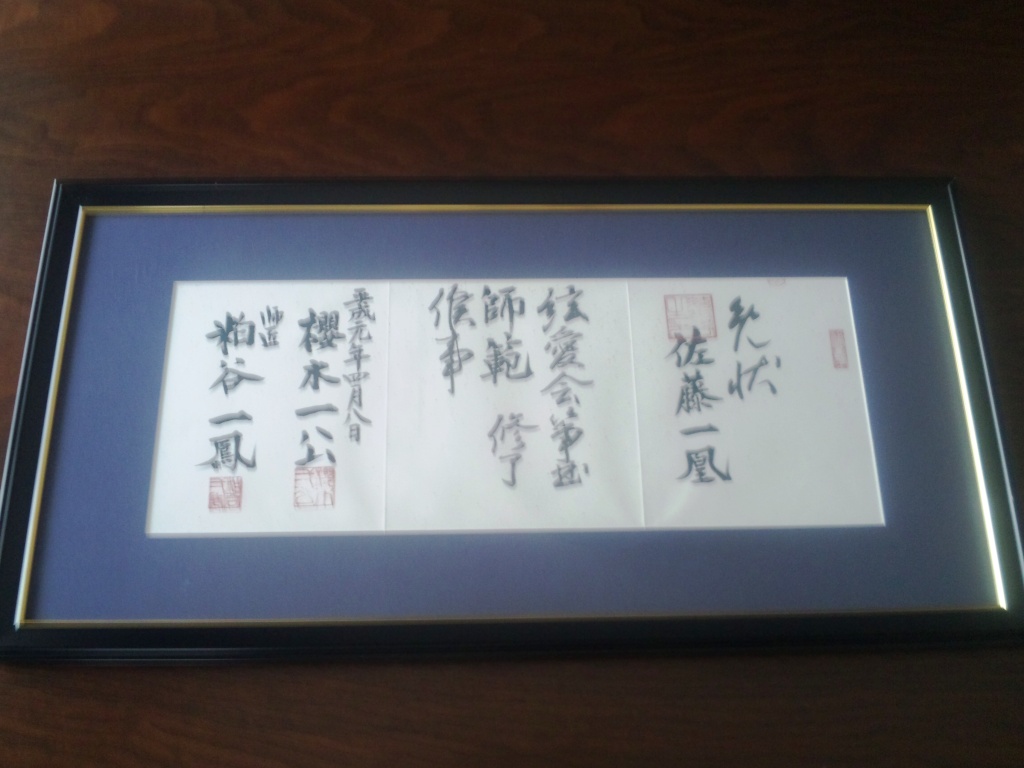 免状
佐藤一凰
絃愛会箏曲
師範 修了
候事
平成元年四月八日
櫻木一公
師匠
粕谷一鳳